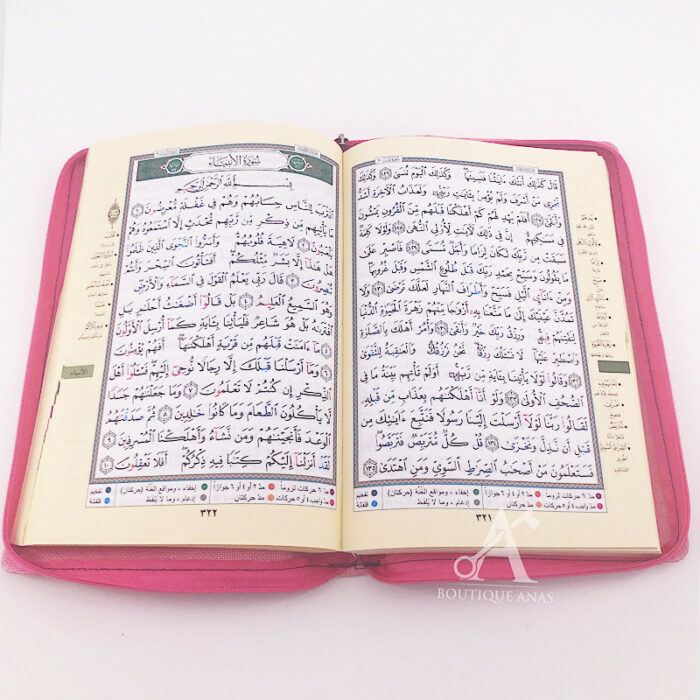 قَالَ كَذَٰلِكَ أَتَتْكَ ءَايَٰتُنَا فَنَسِيتَهَا وَكَذَٰلِكَ ٱلْيَوْمَ تُنسَىٰ ١٢٦ وَكَذَٰلِكَ
نَجْزِى مَنْ أَسْرَفَ وَلَمْ يُؤْمِنۢ بِـَٔايَٰتِ رَبِّهِۦ وَلَعَذَابُ ٱلْءَاخِرَةِ أَشَدُّ
وَأَبْقَىٰٓ ١٢٧ أَفَلَمْ يَهْدِ لَهُمْ كَمْ أَهْلَكْنَا قَبْلَهُم مِّنَ ٱلْقُرُونِ يَمْشُونَ
فِى مَسَٰكِنِهِمْ إِنَّ فِى ذَٰلِكَ لَءَايَٰتٍ لِّأُو۟لِى ٱلنُّهَىٰ ١٢٨ وَلَوْلَا كَلِمَةٌ
سَبَقَتْ مِن رَّبِّكَ لَكَانَ لِزَامًا وَأَجَلٌ مُّسَمًّى ١٢٩ فَٱصْبِرْ عَلَىٰ
مَا يَقُولُونَ وَسَبِّحْ بِحَمْدِ رَبِّكَ قَبْلَ طُلُوعِ ٱلشَّمْسِ وَقَبْلَ غُرُوبِهَا
وَمِنْ ءَانَآئِ ٱلَّيْلِ فَسَبِّحْ وَأَطْرَافَ ٱلنَّهَارِ لَعَلَّكَ تَرْضَىٰ ١٣٠ وَلَا
تَمُدَّنَّ عَيْنَيْكَ إِلَىٰ مَا مَتَّعْنَا بِهِۦٓ أَزْوَٰجًا مِّنْهُمْ زَهْرَةَ ٱلْحَيَوٰةِ ٱلدُّنْيَا
لِنَفْتِنَهُمْ فِيهِ وَرِزْقُ رَبِّكَ خَيْرٌ وَأَبْقَىٰ ١٣١ وَأْمُرْ أَهْلَكَ بِٱلصَّلَوٰةِ
وَٱصْطَبِرْ عَلَيْهَا لَا نَسْـَٔلُكَ رِزْقًا نَّحْنُ نَرْزُقُكَ وَٱلْعَٰقِبَةُ لِلتَّقْوَىٰ
١٣٢ وَقَالُوا۟ لَوْلَا يَأْتِينَا بِـَٔايَةٍ مِّن رَّبِّهِۦٓ أَوَلَمْ تَأْتِهِم بَيِّنَةُ مَا فِى
ٱلصُّحُفِ ٱلْأُولَىٰ ١٣٣ وَلَوْ أَنَّآ أَهْلَكْنَٰهُم بِعَذَابٍ مِّن قَبْلِهِۦ
لَقَالُوا۟ رَبَّنَا لَوْلَآ أَرْسَلْتَ إِلَيْنَا رَسُولًا فَنَتَّبِعَ ءَايَٰتِكَ مِن
قَبْلِ أَن نَّذِلَّ وَنَخْزَىٰ ١٣٤ قُلْ كُلٌّ مُّتَرَبِّصٌ فَتَرَبَّصُوا۟
فَسَتَعْلَمُونَ مَنْ أَصْحَٰبُ ٱلصِّرَٰطِ ٱلسَّوِىِّ وَمَنِ ٱهْتَدَىٰ ١٣٥
مدّ ٦ حركات لزوماً مدّ ٢ أو ٤ أو ٦ جوازاً إخفاء، ومواقع الغُنَّة (حركتان) تفخيم
مدّ واجب ٤ أو ٥ حركات مدّ حركتان إدغام، وما لا يُلفَظ قلقلة
٣٢١
سُورَةُ الأَنبِيَاءِ
بِسْمِ ٱللَّهِ ٱلرَّحْمَٰنِ ٱلرَّحِيمِ
ٱقْتَرَبَ لِلنَّاسِ حِسَابُهُمْ وَهُمْ فِى غَفْلَةٍ مُّعْرِضُونَ ١
مَا يَأْتِيهِم مِّن ذِكْرٍ مِّن رَّبِّهِم مُّحْدَثٍ إِلَّا ٱسْتَمَعُوهُ وَهُمْ
يَلْعَبُونَ ٢ لَاهِيَةً قُلُوبُهُمْ وَأَسَرُّوا۟ ٱلنَّجْوَى ٱلَّذِينَ ظَلَمُوا۟
هَلْ هَٰذَآ إِلَّا بَشَرٌ مِّثْلُكُمْ أَفَتَأْتُونَ ٱلسِّحْرَ وَأَنتُمْ
تُبْصِرُونَ ٣ قَالَ رَبِّى يَعْلَمُ ٱلْقَوْلَ فِى ٱلسَّمَآءِ وَٱلْأَرْضِ
وَهُوَ ٱلسَّمِيعُ ٱلْعَلِيمُ ٤ بَلْ قَالُوٓا۟ أَضْغَٰثُ أَحْلَٰمٍ بَلِ
ٱفْتَرَىٰهُ بَلْ هُوَ شَاعِرٌ فَلْيَأْتِنَا بِـَٔايَةٍ كَمَآ أُرْسِلَ ٱلْأَوَّلُونَ
٥ مَآ ءَامَنَتْ قَبْلَهُم مِّن قَرْيَةٍ أَهْلَكْنَٰهَآ أَفَهُمْ يُؤْمِنُونَ
٦ وَمَآ أَرْسَلْنَا قَبْلَكَ إِلَّا رِجَالًا نُّوحِىٓ إِلَيْهِمْ فَسْـَٔلُوٓا۟ أَهْلَ
ٱلذِّكْرِ إِن كُنتُمْ لَا تَعْلَمُونَ ٧ وَمَا جَعَلْنَٰهُمْ جَسَدًا
لَّا يَأْكُلُونَ ٱلطَّعَامَ وَمَا كَانُوا۟ خَٰلِدِينَ ٨ ثُمَّ صَدَقْنَٰهُمُ
ٱلْوَعْدَ فَأَنجَيْنَٰهُمْ وَمَن نَّشَآءُ وَأَهْلَكْنَا ٱلْمُسْرِفِينَ ٩
لَقَدْ أَنزَلْنَآ إِلَيْكُمْ كِتَٰبًا فِيهِ ذِكْرُكُمْ أَفَلَا تَعْقِلُونَ ١٠
مدّ ٦ حركات لزوماً مدّ ٢ أو ٤ أو ٦ جوازاً إخفاء، ومواقع الغُنَّة (حركتان) تفخيم
مدّ واجب ٤ أو ٥ حركات مدّ حركتان إدغام، وما لا يُلفَظ قلقلة
٣٢٢
الأنبياء
BOUTIQUE ANAS